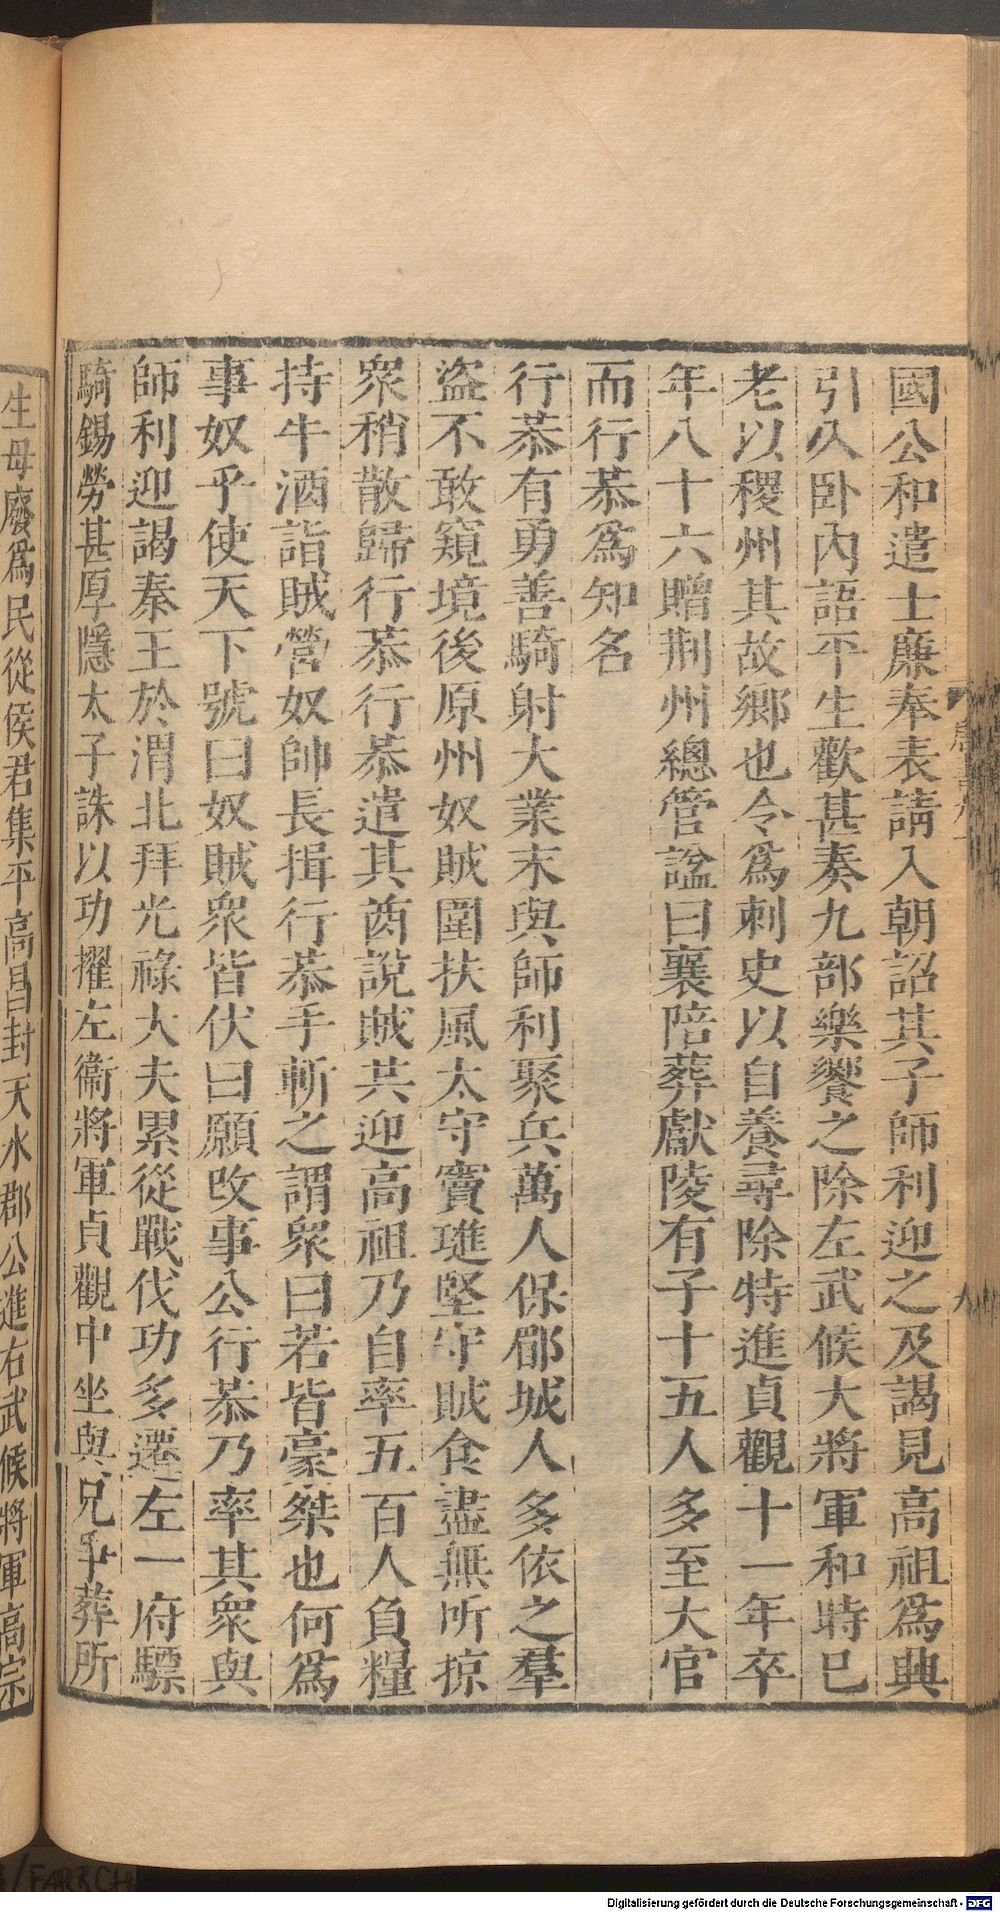 國公和遣士廉奉表請入朝詔其子師利迎之及謁見高祖爲興
引入卧內語平生歡甚奏九部樂饗之除左武候大將軍和時已
老以稷州其故鄉也令爲刺史以自養尋除特進貞觀十一年卒
年八十六贈荆州總管諡曰襄陪葬獻陵有子十五人多至大官
而行恭爲知名
行恭有勇善騎射大業末與師利聚兵萬人保郿城人多依之羣
盜不敢窺境後原州奴賊圍扶風太守竇璡堅守賊食盡無所掠
衆稍散歸行恭行恭遣其酋說賊共迎高祖乃自率五百人負糧
持牛酒詣賊營奴帥長揖行恭手斬之謂衆曰若皆豪桀也何爲
事奴乎使天下號曰奴賊衆皆伏曰願改事公行恭乃率其衆與
師利迎謁秦王於渭北拜光祿大夫累從戰伐功多遷左一府驃
騎錫勞甚厚隱太子誅以功擢左衞將軍貞觀中坐與兄爭葬所
生母廢爲民從侯君集平高昌封天水郡公進右武候將軍高宗
九
Digitalisierung gefördert durch die Deutsche Forschungsgemeinschaft - DFG